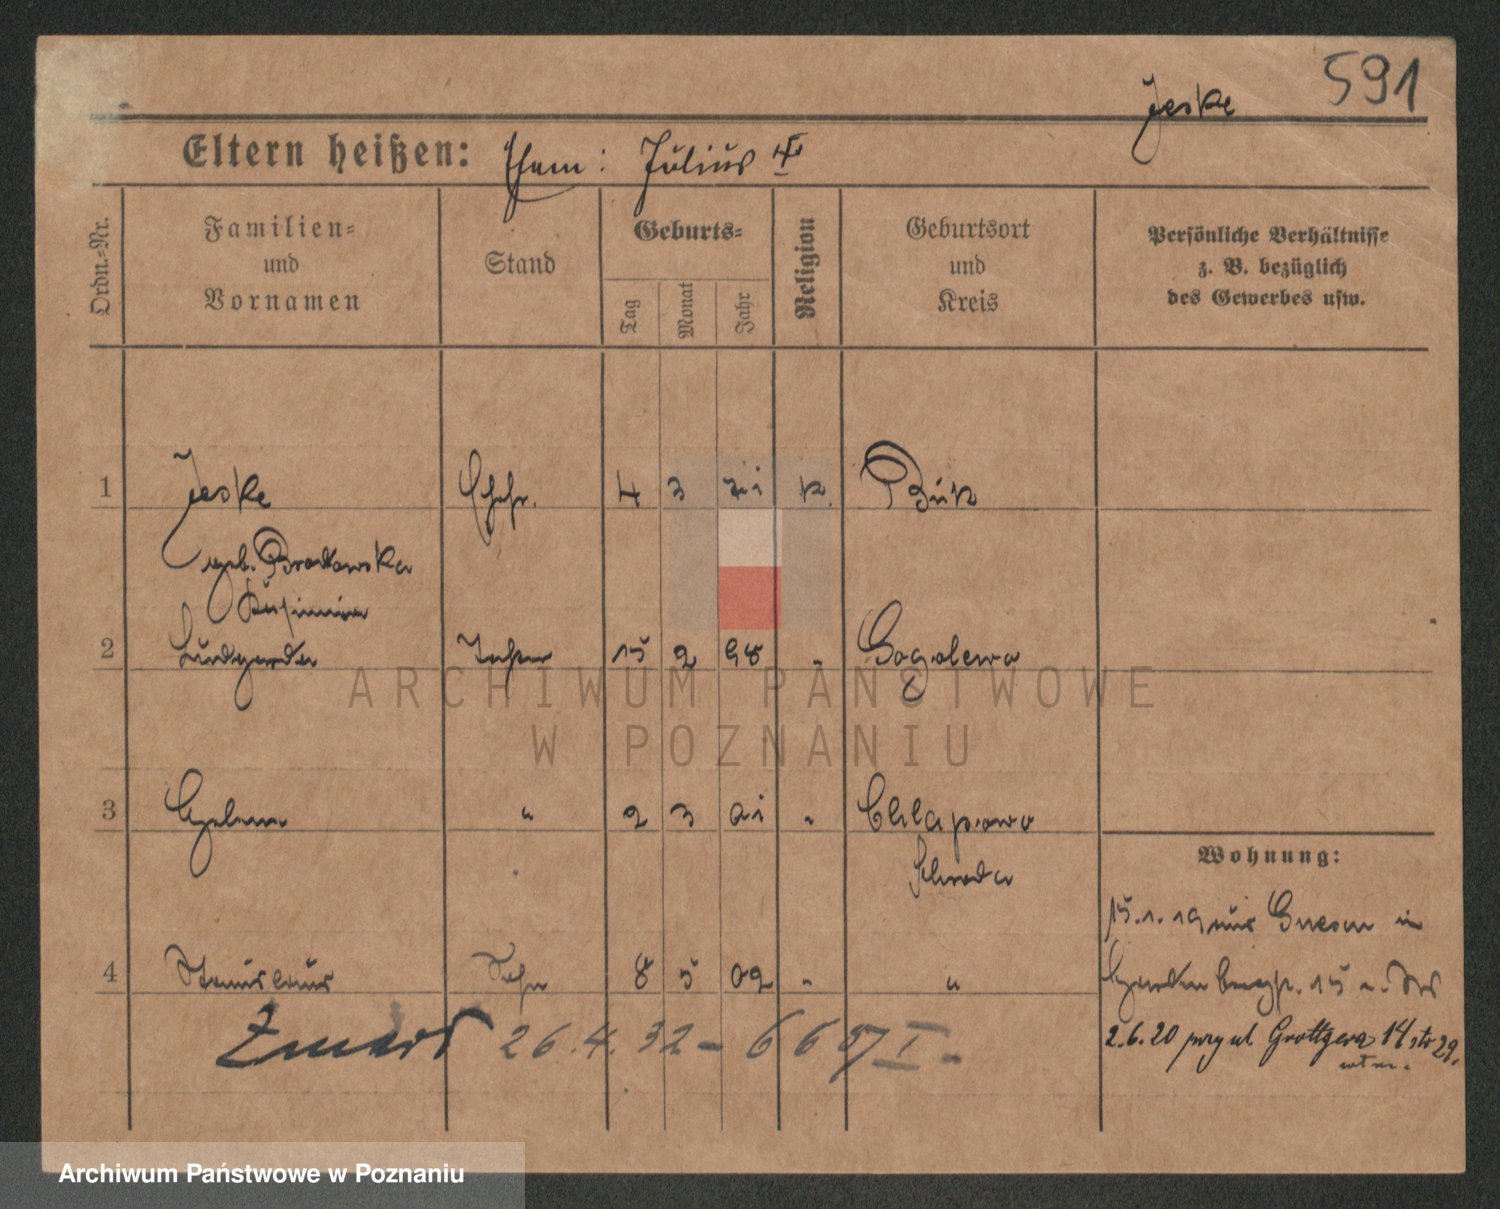 591
Jeske
Eltern heißen: Ehem: Julius †
Ordn.-Nr.
Familien=
und
Vornamen
Stand
Geburts=
Tag
Monat
Jahr
Religion
Geburtsort
und
Kreis
Persönliche Verhältnisse
z. B. bezüglich
des Gewerbes usw.
1 Jeske Ehefr. 4 3 71 k. Buk
geb. Brodowska
2 Ludgarda 15 2 98 " Gogolewo
3 " 2 3 01 " Chlapowo
Schroda
4 Stanislaus Sohn 8 5 02 " "
Zmarł 26.4.32 - 667 I -
Wohnung:
15.1.19 aus Gnesen in
2.6.20 przy ul. Grottgera 14 str 29.
ARCHIWUM PAŃSTWOWE
W POZNANIU
Archiwum Państwowe w Poznaniu